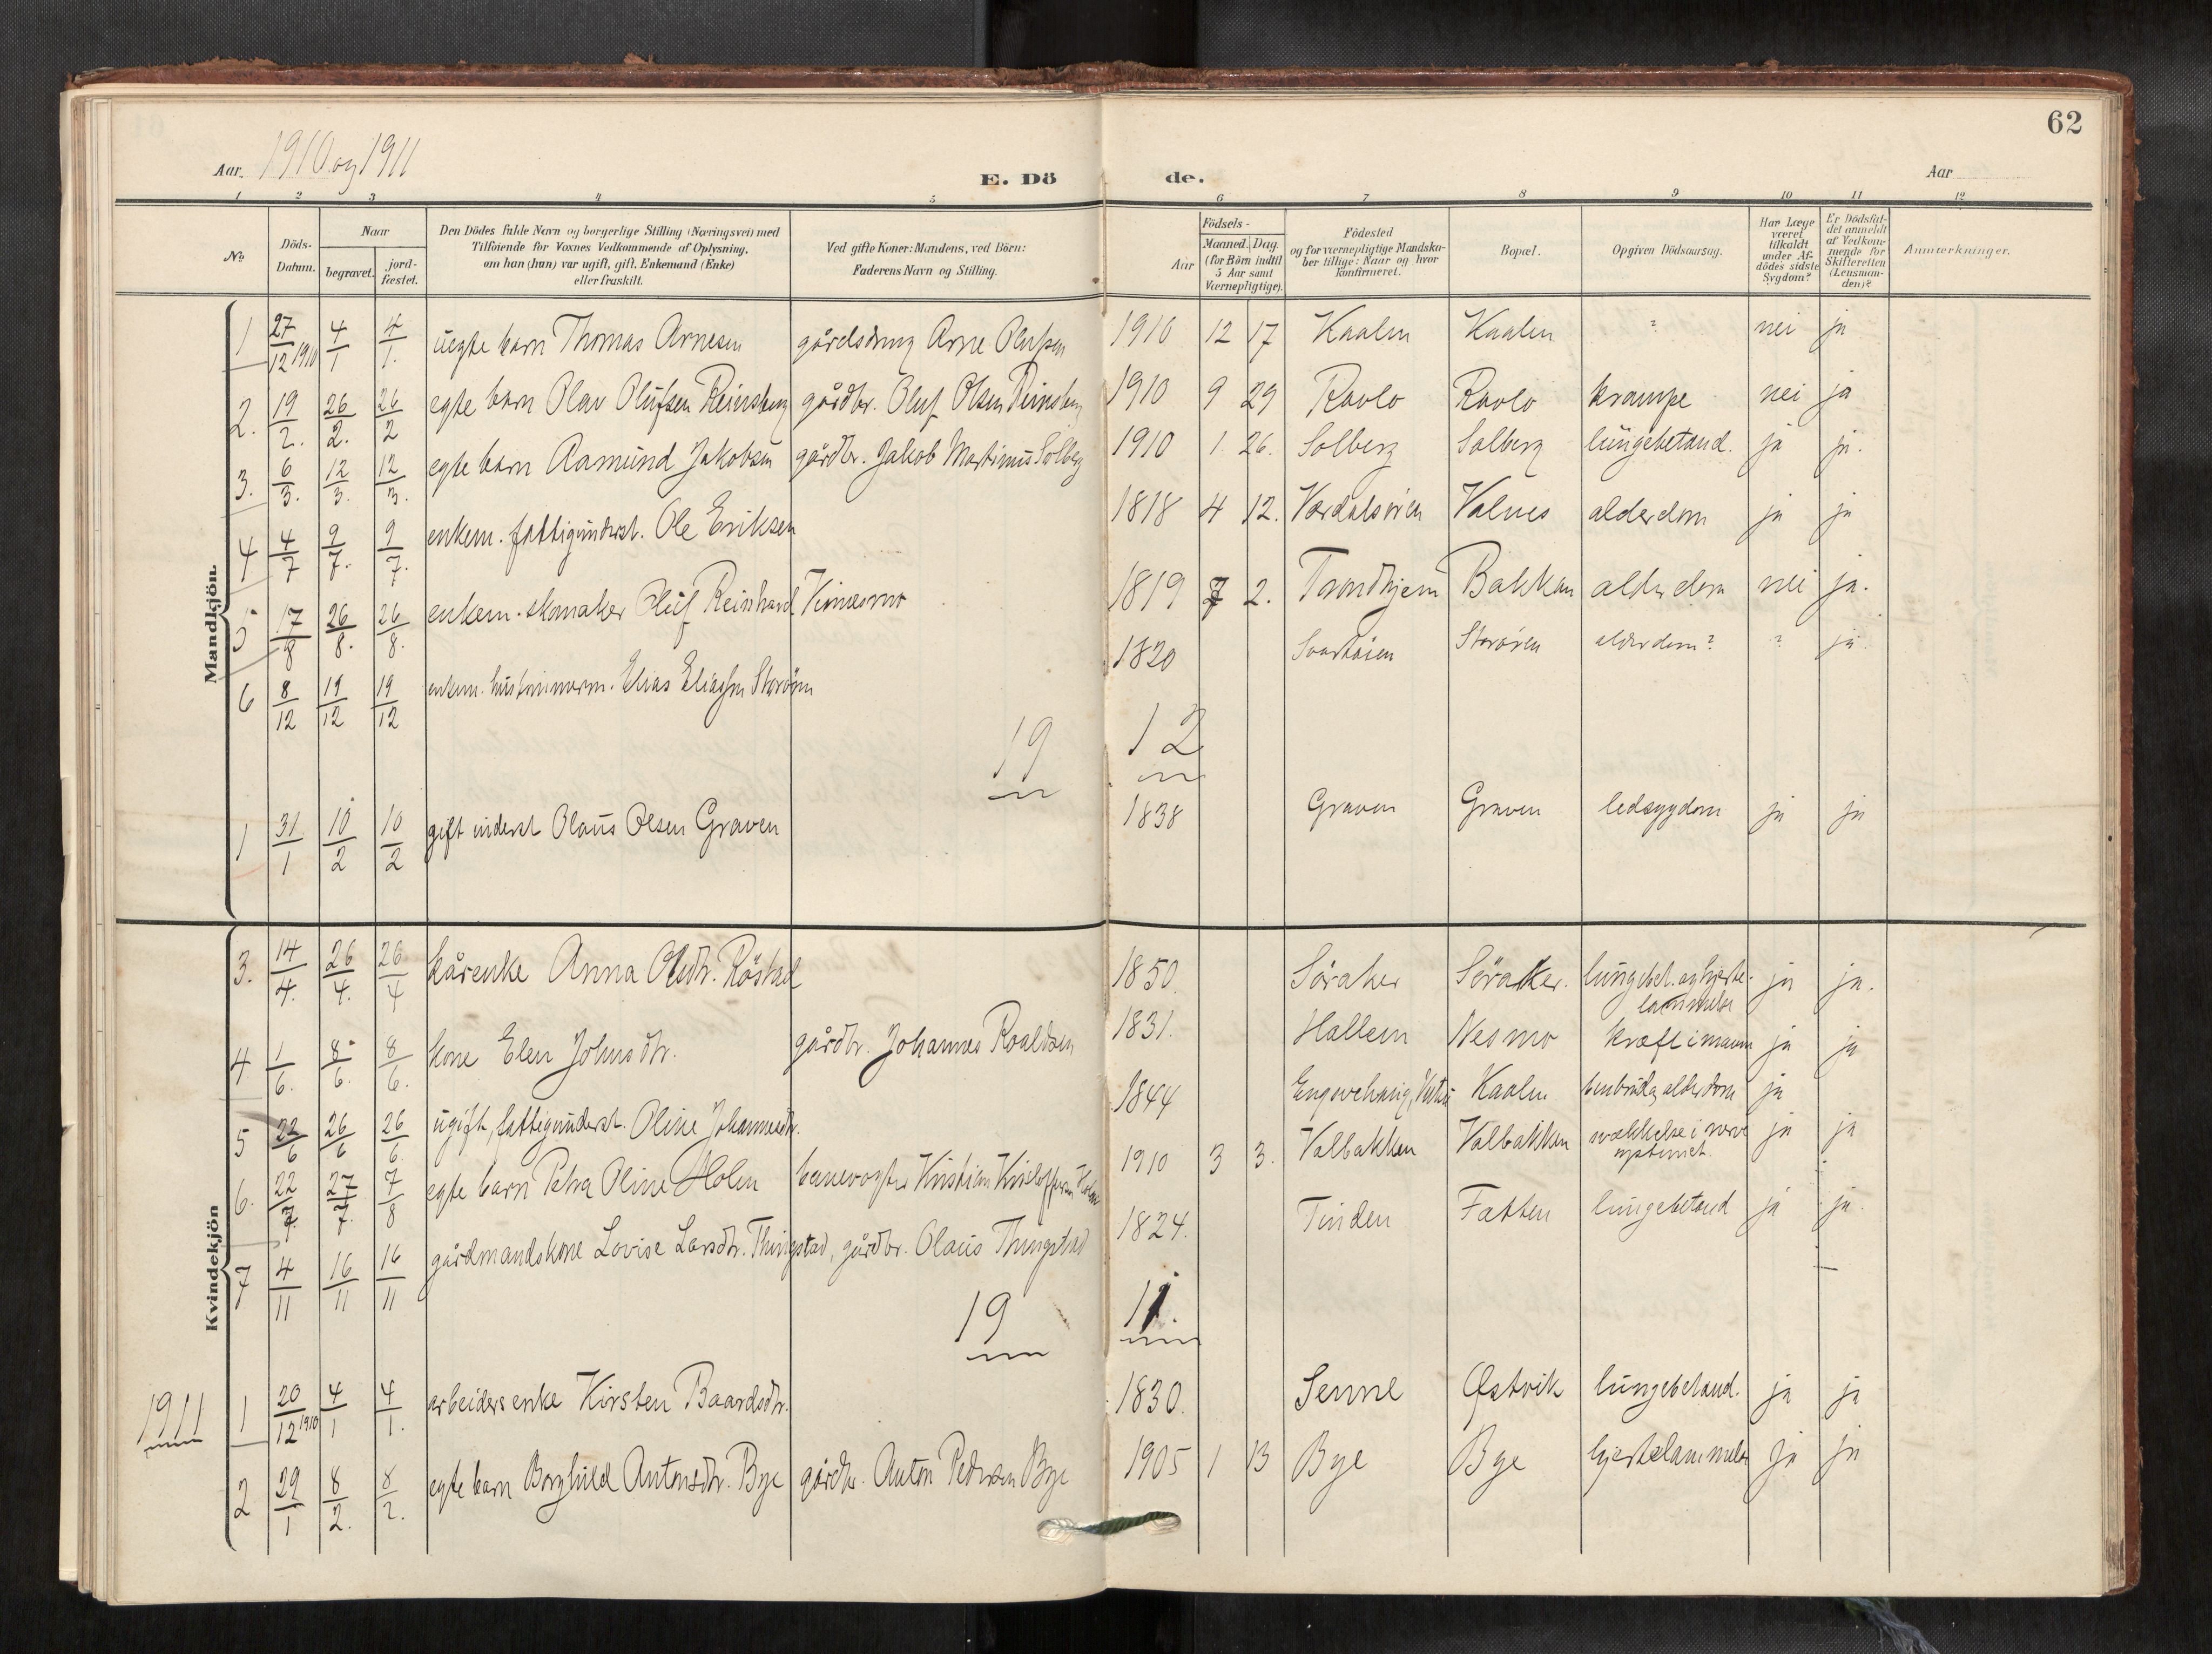 62
Aar 1910 og 1911
E. Dö de.
Aar
1 2 3 4 5 6 7 8 9 10 11 12
No
Döds-Datum.
Naar
begravet.
jord-fæstet.
Den Dödes fulde Navn og borgerlige Stilling (Næringsvei) med
Tilföiende for Voxnes Vedkommende af Oplysning,
om han (hun) var ugift, gift, Enkemand (Enke)
eller fraskilt.
Ved gifte Koner: Mandens, ved Börn:
Faderens Navn og Stilling.
Födsels-
Aar
Maaned. Dag.
(for Börn indtil
5 Aar samt
Værnepligtige).
Födested
og for værnepligtige Mandska-
ber tillige: Naar og hvor
konfirmeret.
Bopæl.
Opgiven Dödsaarsag.
Har Læge
været
tilkaldt
under Af-
dödes sidste
Sygdom?
Er Dödsfal-
det anmeldt
af Vedkom-
mende for
Skifteretten
(Lensman-
den)?
Anmærkninger.
Mandkjön.
1 27/12 1910 4/1 4/1. uegte barn Thomas Arnesen gårdsdreng Arne Olufsen 1910 12 17 Kaalen Kaalen ? nei ja
2. 19/2. 26/2. 26/2 egte barn Olav Olufsen Reinsberg gårdbr. Oluf Olsen Reinsberg 1910 9 29 Ravlo Ravlo krampe nei ja
3. 6/3. 12/3. 12/3. egte barn Aamund Jakobsen gårdbr. Jakob Martinus Solberg 1910 1. 26. Solberg Solberg lungebetænd. ja ja.
4 4/7 9/7. 9/7. enkem. fattigunderst. Ole Eriksen 1818 4 12. Værdalsøren Valnes alderdom ja ja
5 17/8 26/8. 26/8. enkem. skomaker Oluf Reinhard Kvinesmo 1819 7 2. Trondhjem Bakkan alderdom nei ja.
6 8/12 19/12 19/12 enkem. husbondsmand. Elias Eliassen Storøren 1820 Svartåsen Storøren alderdom? ? ja
19 12
1 31/1 10/2 10/2 gift inderst Olaus Olsen Graven 1838 Graven Graven ledsygdom ja ja
Kvindekjön
3. 14/4. 26/4. 26/4 kårenke Anna Olsdtr. Röstad 1850. Søraker Søraker. lungebet. og hjerte-
lammelse ja ja.
4 1/6. 8/6. 8/6. kone Elen Johnsdtr. gårdbr. Johannes Roaldsen 1831. Hallem Nesmo kræft i maven ja ja
5 22/6 26/6 26/6. ugift, fattigunderst. Oline Johannesdtr. 1844 Kaalen benbrud og alderdom ja
6. 22/7. 27/7. 7/8 egte barn Petra Oline Holen banevogter Kristian Kristoffersen Holen 1910 3 3. Valbakken Valbakken svækkelse i nerve
systemet. ja ja
7 4/11 16/11 16/11 gårdmandskone Lovise Larsdtr. Thingstad, gårdbr. Olaus Thingstad 1824. Tinden Fatten lungebetænd ja ja.
19 11.
1911
1 20/12 1910 4/1 4/1. arbeidersenke Kirsten Baardsdtr. 1830. Senne Østvik lungebetænd. ja ja
2 29/1 8/2. 8/2. egte barn Borghild Antonsdtr. Bye gårdbr. Anton Pedersen Bye 1905 1 13 Bye Bye hjertelammelse ja ja